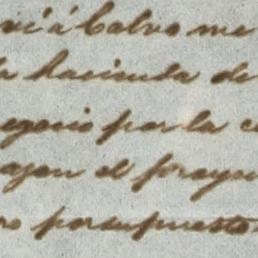 vi á Calvo me
la hacienda de
egocio por la c
ajon el proyec
ro por supuesto